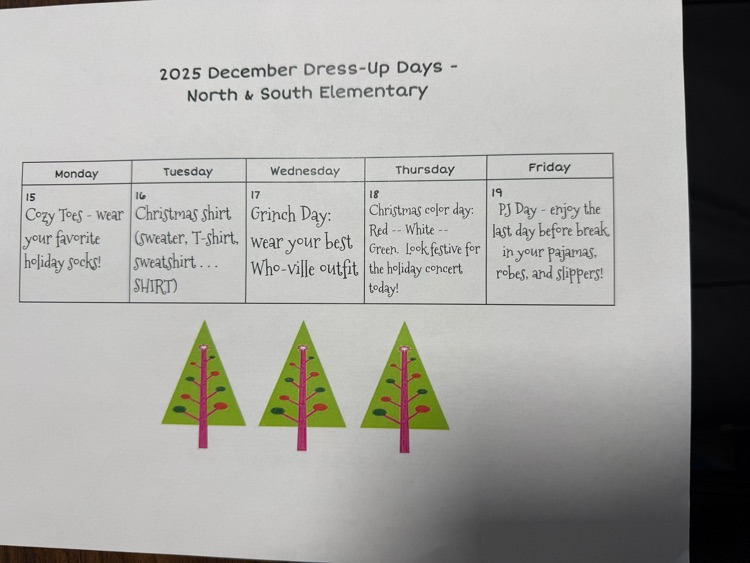 2025 December Dress-Up Days -
North & South Elementary
Monday
Tuesday
Wednesday
Thursday
Friday
15
Cozy Toes - wear
your favorite
holiday socks!
16
Christmas shirt
(sweater, T-shirt,
sweatshirt . . .
SHIRT)
17
Grinch Day:
wear your best
Who-ville outfit
18
Christmas color day:
Red -- White --
Green. Look festive for
the holiday concert
today!
19
PJ Day - enjoy the
last day before break
in your pajamas,
robes, and slippers!